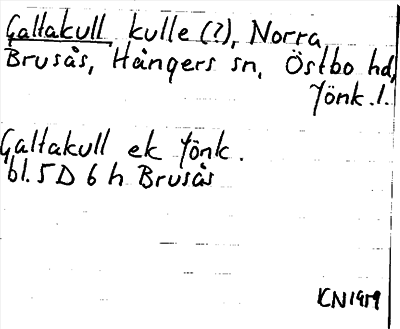 Galtakull kulle (?), Norra
Brusås, Hångers sn, Östbo hd,
Jönk. l.
Galtakull ek Jönk.
bl. 5D 6h Brusås